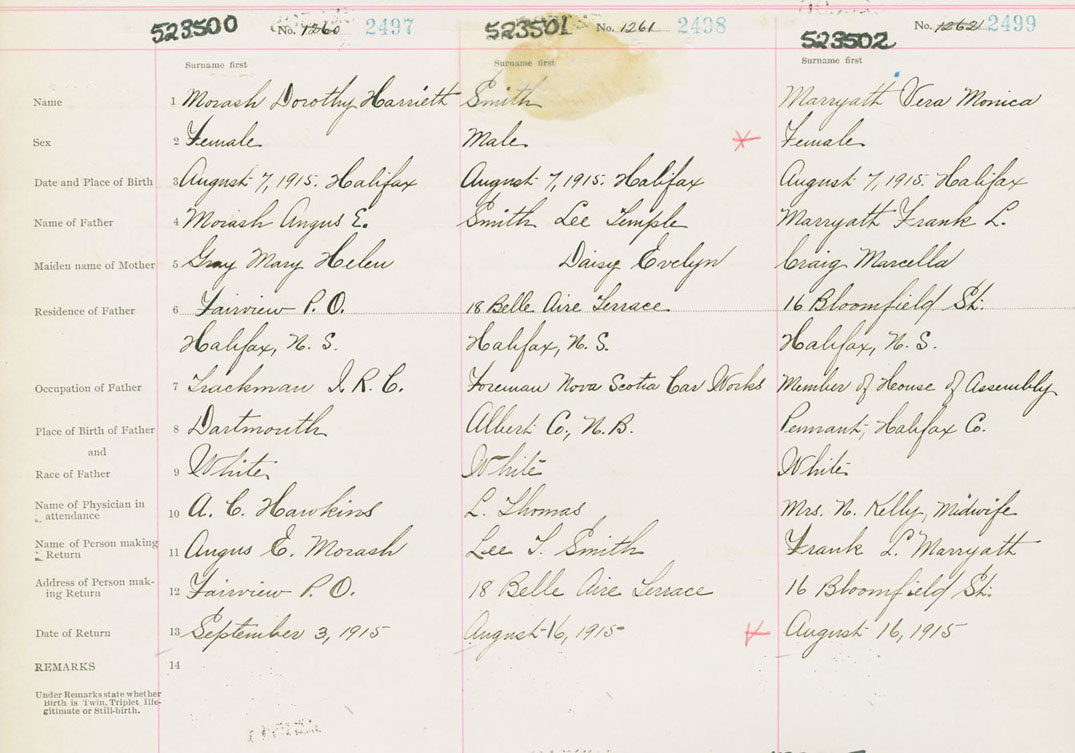 523500 No. 1260 2497 523501 No. 1261 2498 523502 No. 1262 2499
Surname first Surname first Surname first
Name 1 Morash Dorothy Harrieth Smith Marryath Vera Monica
Sex 2 Female Male Female
Date and Place of Birth 3 August 7, 1915. Halifax August 7, 1915. Halifax August 7, 1915. Halifax
Name of Father 4 Morash Angus E. Smith Lee Temple Marryath Frank L.
Maiden name of Mother 5 Gray Mary Helen Daisy Evelyn Craig Marcella
Residence of Father 6 Fairview P.O. 18 Belle Aire Terrace 16 Bloomfield St.
Halifax, N.S. Halifax, N.S. Halifax, N.S.
Occupation of Father 7 Trackman I.R.C. Foreman Nova Scotia Car Works Member of House of Assembly
Place of Birth of Father 8 Dartmouth Albert Co., N.B. Pennant, Halifax Co.
and
Race of Father 9 White White White
Name of Physician in
attendance 10 A. C. Hawkins L. Thomas Mrs. N. Kelly, Midwife
Name of Person making
Return 11 Angus E. Morash Lee T. Smith Frank L. Marryath
Address of Person mak-
ing Return 12 Fairview P.O. 18 Belle Aire Terrace 16 Bloomfield St.
Date of Return 13 September 3, 1915 August 16, 1915 August 16, 1915
REMARKS 14
Under Remarks state whether
Birth is Twin, Triplet, Ille-
gitimate or Still-birth.